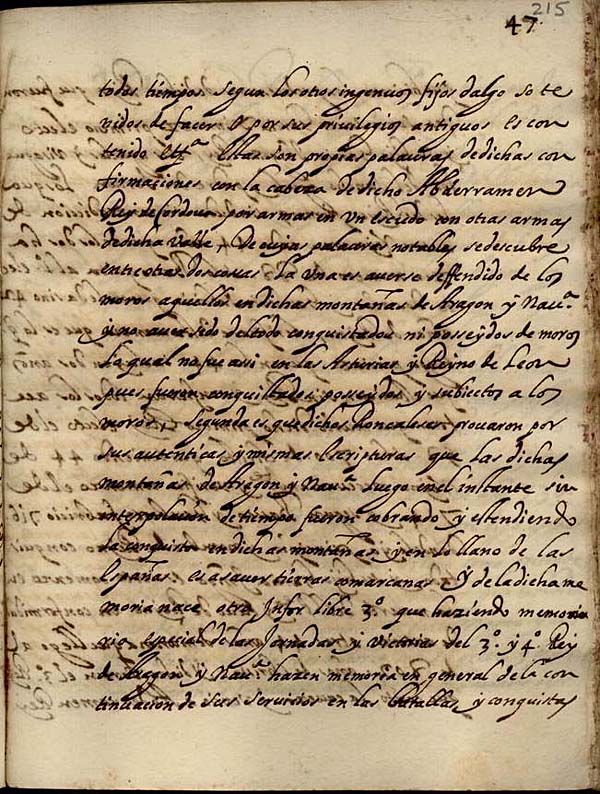 215
47
todos tiempos segun los otros ingenios fijos dalgo so te
nidos de facer y por sus privilegios antiguos es con
tenido &tª. Estas son propias palauras de dichas con
firmaciones con la cabeza de dicho Abderramen
Rey de Cordoua por armas en vn escudo con otras armas
de dicha Valle, De cuyas palauras notables se descubre
entre otras dos cosas. La vna es auerse deffendido de los
moros aquellos en dichas montañas de Aragon y Nauª.
y no auer sido del todo conquistados ni posseydos de moros
Lo qual no fue assi en las Asturias y Reyno de Leon
pues fueron conquistados posseydos y subiectos a los
moros. Segunda es que dichos Roncaleses prouaron por
sus autenticas y mismas Escripturas que las dichas
montañas de Aragon y Nauª. luego en el instante sin
interpolacion de tiempo fueron cobrando y estendiendo
la conquista en dichas montañas y en lo llano de las
Españas es a sauer tierras comarcanas. Y de la dicha me
moria nace otra Infor libre 3º. que haziendo memoria
especial de las Jornadas y victorias del 3º. y 4º. Rey
de Aragon y Nauª. hazen memoria en general de la con
tinuacion de sus seruicios en las batallas y conquistas